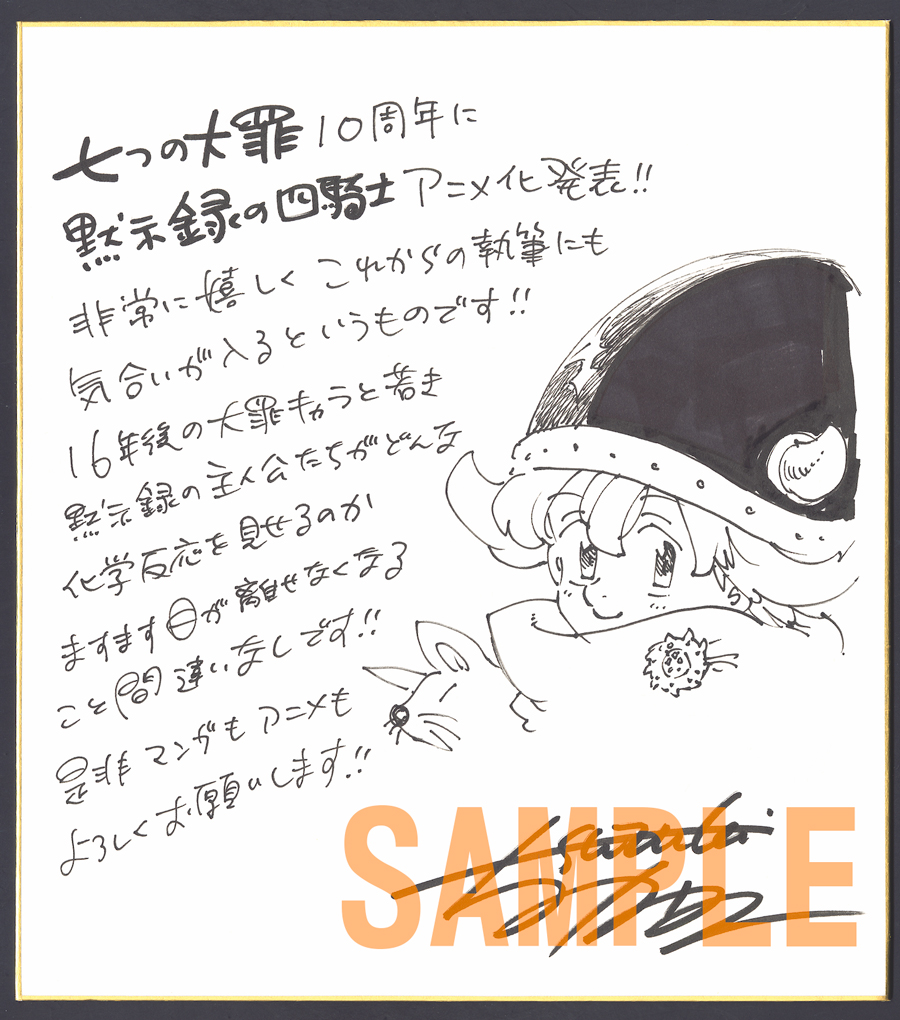 七つの大罪10周年に
黙示録の四騎士アニメ化発表!!
非常に嬉しくこれからの執筆にも
気合いが入るというものです!!
16年後の大罪キャラと若き
黙示録の主人公たちがどんな
化学反応を見せるのか
ますます目が離せなくなる
こと間違いなしです!!
是非マンガもアニメも
よろしくお願いします!!
SAMPLE